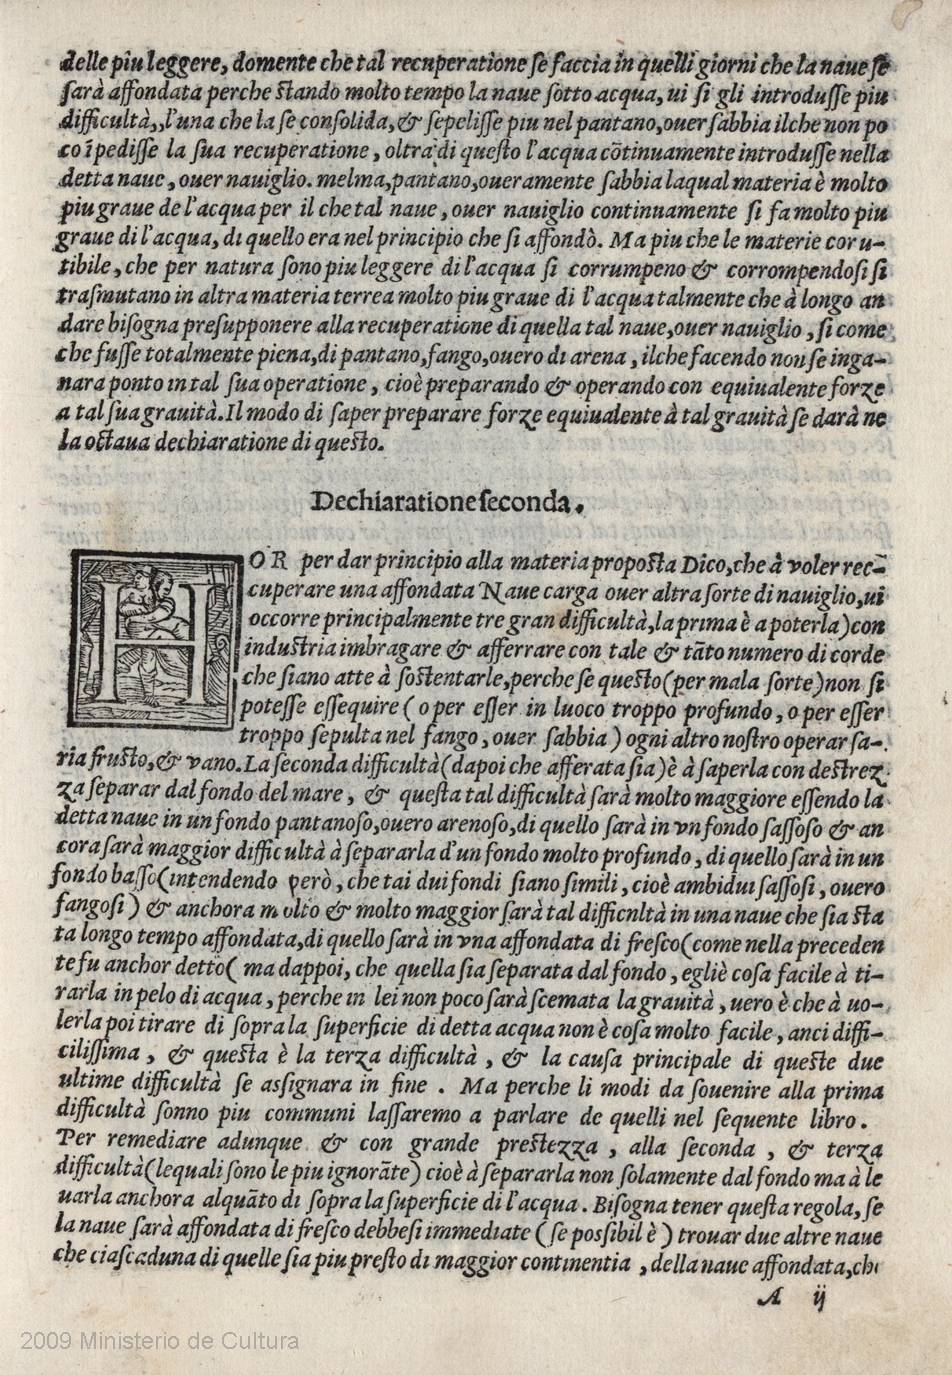 delle piu leggere, domente che tal recuperatione se faccia in quelli giorni che la naue se
sarà affondata perche stando molto tempo la naue sotto acqua, ui si gli introdusse piu
difficultà,,l'una che la se consolida, & sepelisse piu nel pantano,ouer sabbia ilche non po
co ĩpedisse la sua recuperatione, oltra di questo l'acqua cõtinuamente introdusse nella
detta naue, ouer nauiglio. melma,pantano,oueramente sabbia laqual materia è molto
piu graue de l'acqua per il che tal naue, ouer nauiglio continuamente si fa molto piu
graue di l'acqua, di quello era nel principio che si affondò. Ma piu che le materie coru-
tibile, che per natura sono piu leggere di l'acqua si corrumpeno & corrompendosi si
trasmutano in altra materia terrea molto piu graue di l'acqua talmente che à longo an
dare bisogna presupponere alla recuperatione di quella tal naue,ouer nauiglio, si come
che fusse totalmente piena,di pantano,fango,ouero di arena, ilche facendo non se inga-
nara ponto in tal sua operatione, cioè preparando & operando con equiualente forze
a tal sua grauità.Il modo di saper preparare forze equiualente à tal grauità se darà ne
la octaua dechiaratione di questo.
Dechiaratione seconda.
HOR per dar principio alla materia proposta Dico,che à voler rec̃-
cuperare una affondata Naue carga ouer altra sorte di nauiglio,ui
occorre principalmente tre gran difficultà,la prima è a poterla)con
industria imbragare & afferrare con tale & tãto numero di corde
che siano atte à sostentarle,perche se questo(per mala sorte)non si
potesse essequire (o per esser in luoco troppo profundo, o per esser
troppo sepulta nel fango, ouer sabbia) ogni altro nostro operar sa-
ria frusto,& vano.La seconda difficultà(dapoi che afferata sia)è à saperla con destrez
za separar dal fondo del mare, & questa tal difficultà sarà molto maggiore essendo la
detta naue in un fondo pantanoso,ouero arenoso,di quello sarà in vn fondo sassoso & an
cora sarà maggior difficultà à separarla d'un fondo molto profundo, di quello sarà in un
fondo basso(intendendo però, che tai dui fondi siano simili, cioè ambidui sassosi, ouero
fangosi) & anchora molto & molto maggior sarà tal difficnltà in una naue che sia sta
ta longo tempo affondata,di quello sarà in vna affondata di fresco(come nella preceden
te fu anchor detto( ma dappoi, che quella sia separata dal fondo, egliè cosa facile à ti-
rarla in pelo di acqua, perche in lei non poco sarà scemata la grauità, uero è che à uo-
lerla poi tirare di sopra la superficie di detta acqua non è cosa molto facile, anci diffi-
cilissima, & questa è la terza difficultà, & la causa principale di queste due
ultime difficultà se assignara in fine. Ma perche li modi da souenire alla prima
difficultà sonno piu communi lassaremo a parlare de quelli nel sequente libro.
Per remediare adunque & con grande prestezza, alla seconda, & terza
difficultà(lequali sono le piu ignorãte) cioè à separarla non solamente dal fondo ma à le
uarla anchora alquãto di sopra la superficie di l'acqua. Bisogna tener questa regola, se
la naue sarà affondata di fresco debbesi immediate (se possibil è) trouar due altre naue
che ciascaduna di quelle sia piu presto di maggior continentia, della naue affondata,che
A ij
2009 Ministerio de Cultura